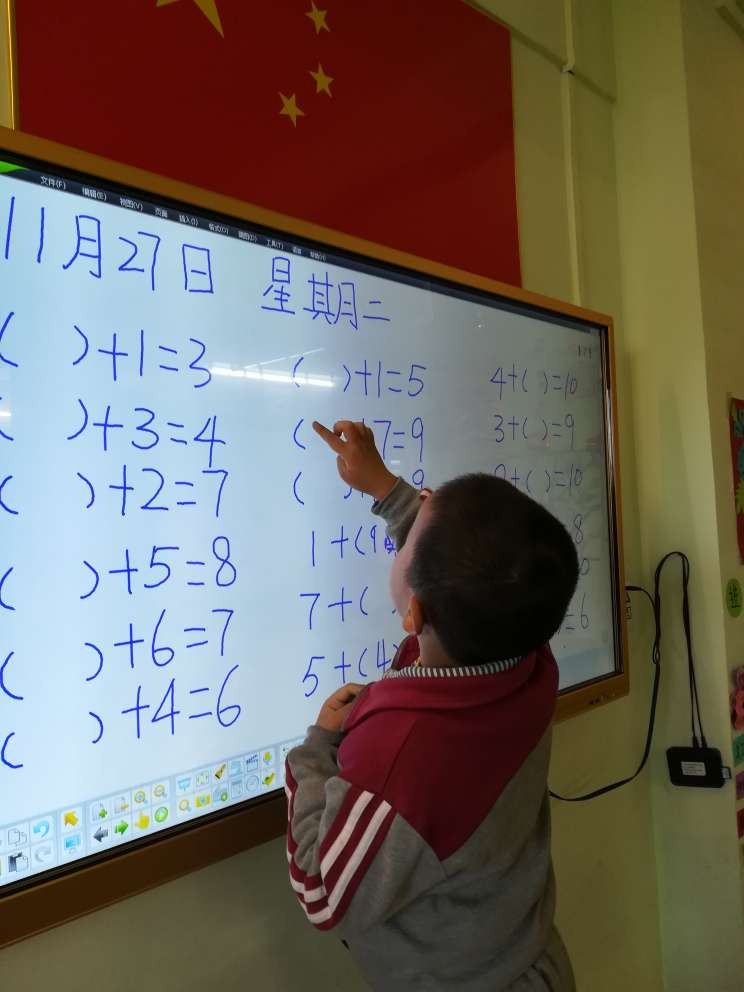 文件(F) 编辑(E) 视图(V) 页面 插入(I) 格式(O) 工具(T) 帮助(H)
11月27日 星期二
( )+1=3 ( )+1=5 4+( )=10
( )+3=4 ( 7=9 3+( )=9
( )+2=7 ( ) 9 +( )=10
( )+5=8 1+(9 8
( )+6=7 7+( ) 0
( )+4=6 5+(4) =6